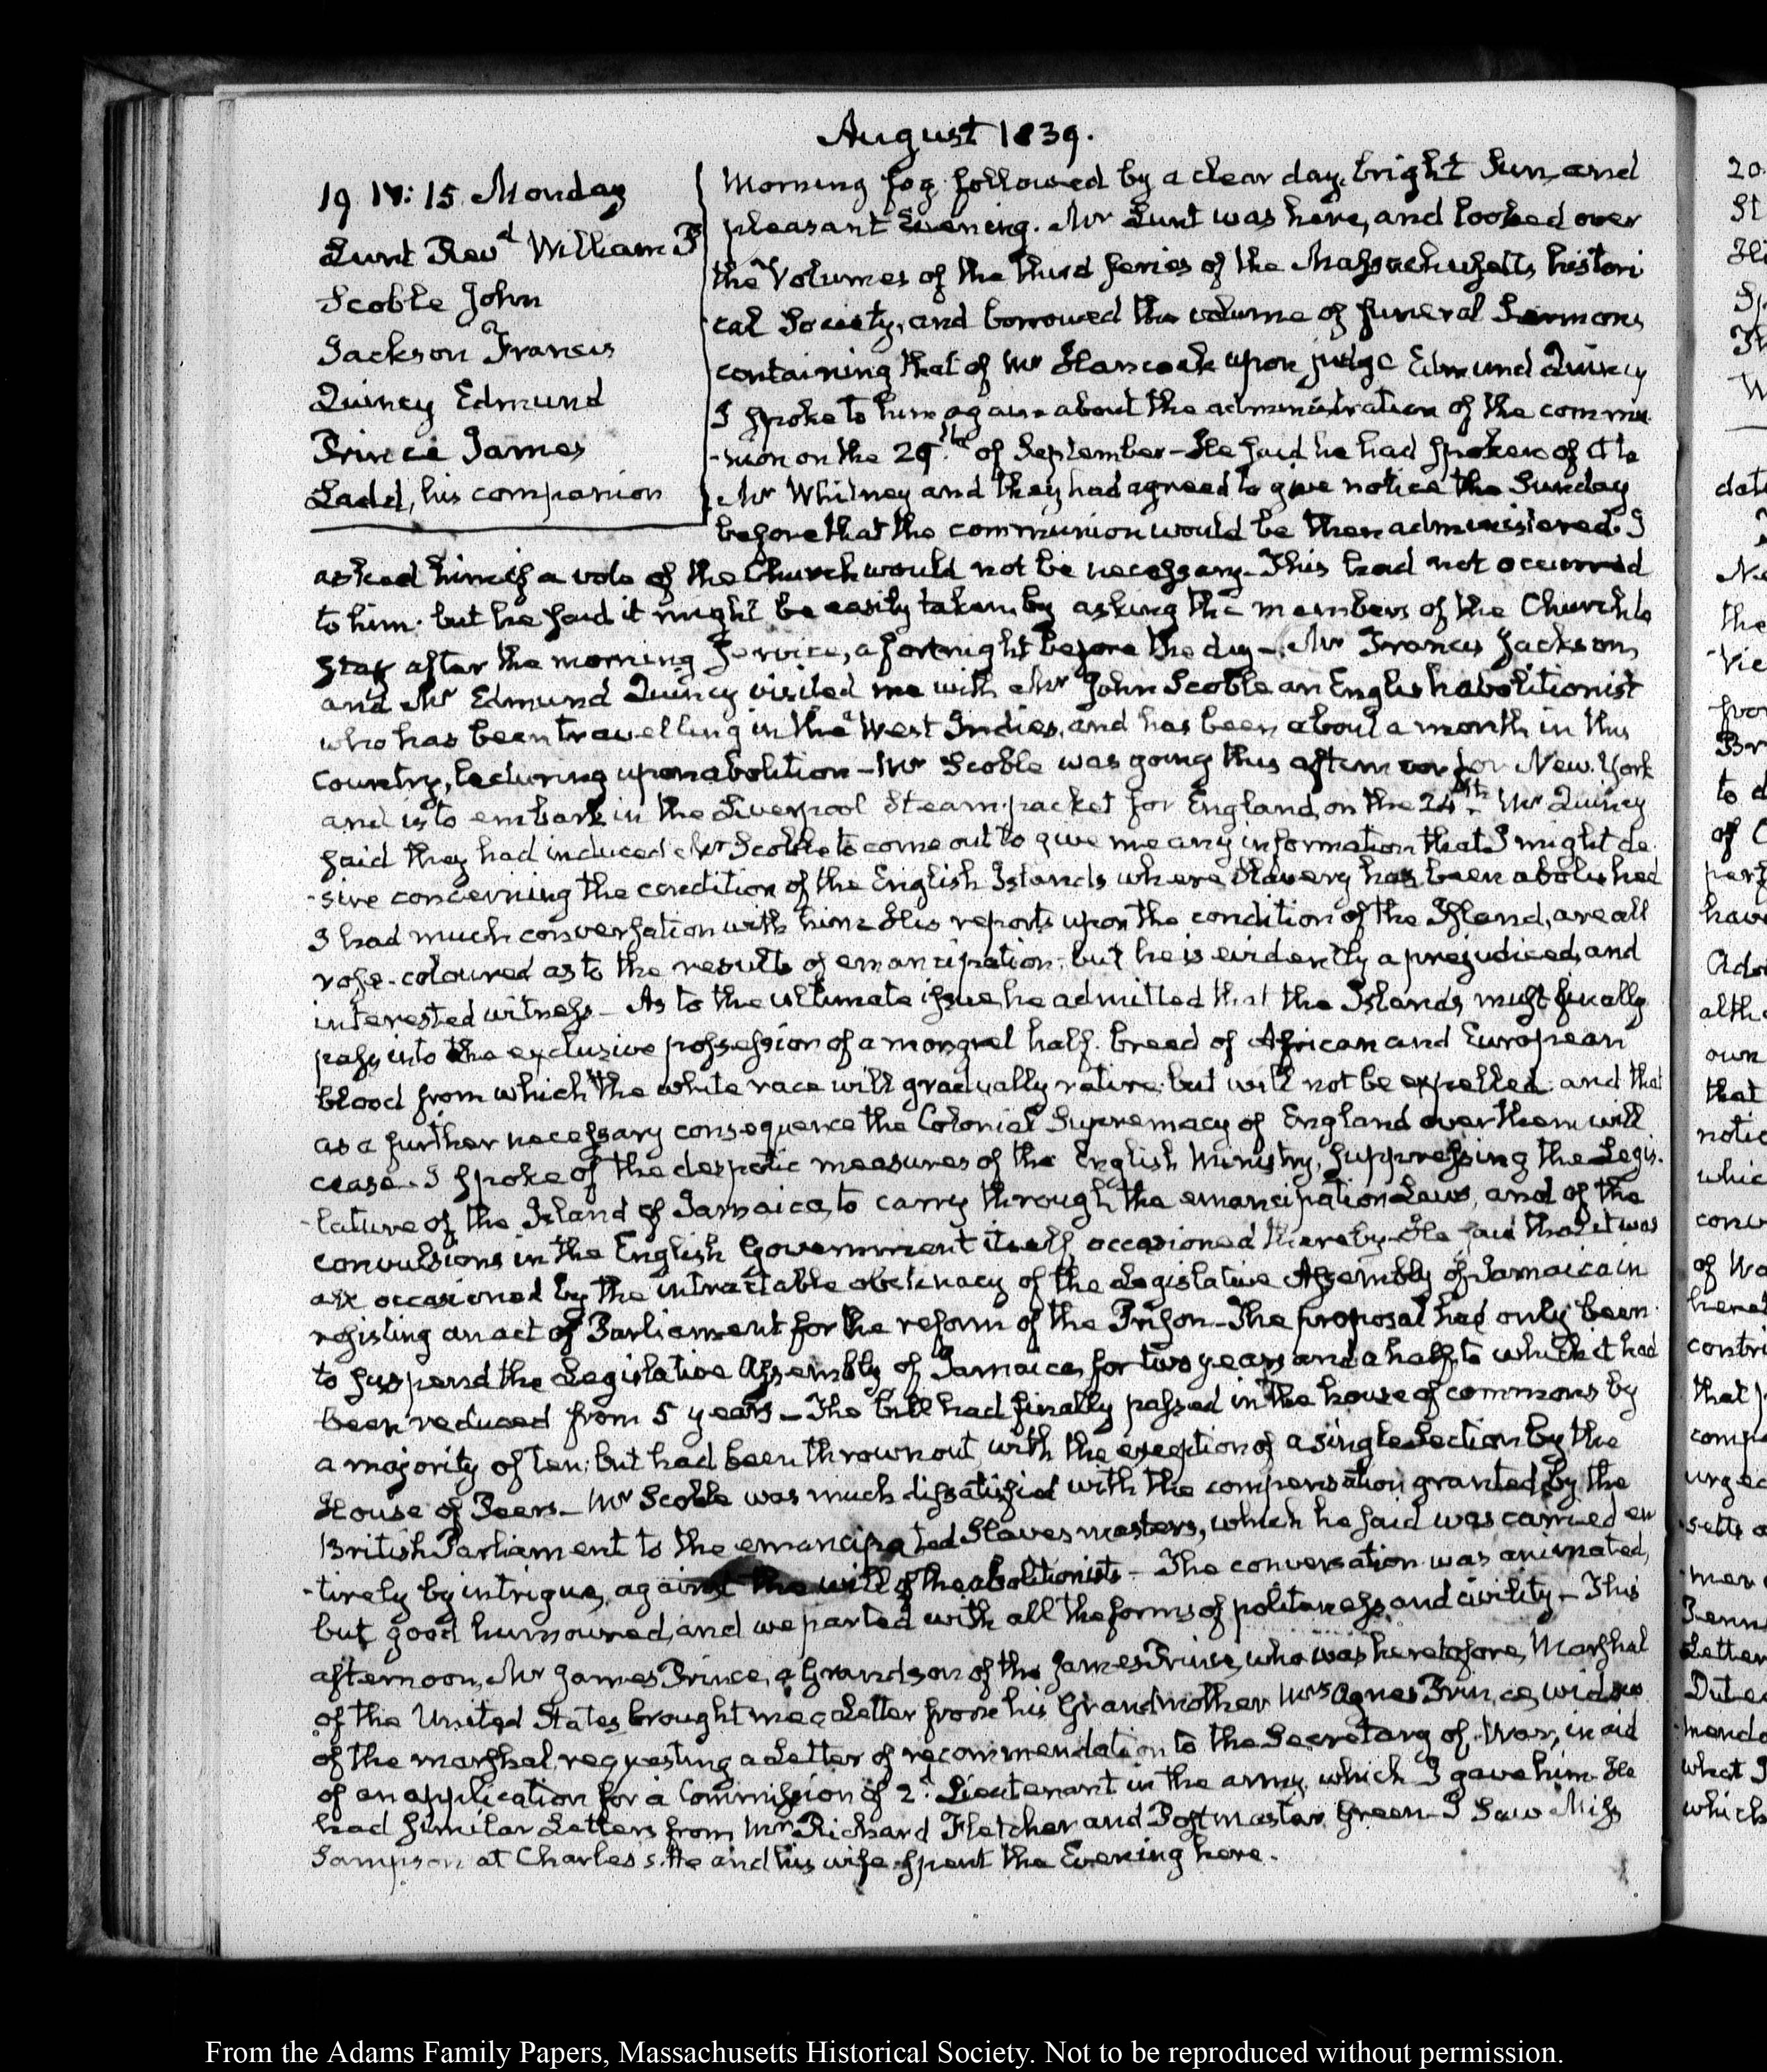 August 1839.
19. IV: 15. Monday
Lunt Rev.d William P
Scoble John
Jackson Francis
Quincy Edmund
Prince James
Ladd, his companion
Morning fog followed by a clear day, bright Sun, and
pleasant Evening. Mr Lunt was here, and looked over
the Volumes of the third series of the Massachusetts histori
cal Society, and borrowed the volume of funeral Sermons
containing that of Mr Hancock upon judge Edmund Quincy
I spoke to him again about the administration of the commu
-nion on the 29.th of September - He said he had spoken of it to
Mr Whitney and they had agreed to give notice the Sunday
before that the communion would be then administered. I
asked him if a vote of the Church would not be necessary - This had not occurred
to him: but he said it might be easily taken, by asking the members of the Church to
stay after the morning service, a fortnight before the day - Mr Francis Jackson,
and Mr Edmund Quincy visited me with Mr John Scoble an English abolitionist
who has been travelling in the West Indies, and has been about a month in this
Country, lecturing upon abolition - Mr Scoble was going this afternoon for New-York
and is to embark in the Liverpool Steam-packet for England, on the 24th. Mr Quincy
said they had induced Mr Scoble to come out to give me any information that I might de
-sire concerning the condition of the English Islands where Slavery has been abolished
I had much conversation with him - His reports upon the condition of the Island, are all
rose-coloured as to the results of emancipation; but he is evidently a prejudiced, and
interested witness - As to the ultimate issue he admitted that the Islands must finally
pass into the exclusive possession of a mongrel half-breed of African and European
blood from which the white race will gradually retire, but will not be expelled: and that
as a further necessary consequence the Colonial Supremacy of England over them will
cease. I spoke of the despotic measures of the English Ministry, suppressing the Legis-
-lature of the Island of Jamaica, to carry through the emancipation Laws, and of the
convulsions in the English Government itself, occasioned thereby - He said that it was
all occasioned by the intractable obstinacy of the Legislative Assembly of Jamaica in
resisting an act of Parliament for the reform of the Prison - The proposal had only been
to suspend the Legislative Assembly of Jamaica, for two years and a half, to which it had
been reduced from 5 years - The bill had finally passed in the house of commons by
a majority of ten; but had been thrown out, with the exception of a single Section by the
House of Peers - Mr Scoble was much dissatisfied with the compensation granted by the
British Parliament to the emancipated Slaves masters, which he said was carried en
-tirely by intrigue, against the will of the abolitionists - The conversation was animated,
but good humoured, and we parted with all the forms of politeness and civility - This
afternoon, Mr James Prince, a Grandson of the James Prince, who was heretofore, Marshal
of the United States brought me a Letter from his Grandmother Mrs Agnes Prince, widow
of the marshal, requesting a Letter of recommendation to the Secretary of War, in aid
of an application for a Commission of 2.d Lieutenant in the army, which I gave him. He
had similar Letters from Mr Richard Fletcher and Postmaster Green - I saw Miss
Sampson at Charles's. He and his wife spent the Evening here.
20.
St
Sp
Th
W
date
the
vie
from
Br
to d
of C
part
have
altho
own
that
notic
whic
conv
of
heret
contri
that
comp
urged
setts a
men
Penns
Letter
what I
which
From the Adams Family Papers, Massachusetts Historical Society. Not to be reproduced without permission.